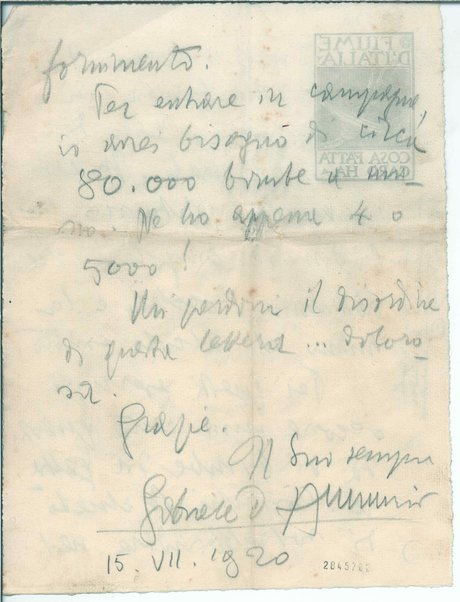 fornimento.
Per entrare in campagna,
io avrei bisogno di circa
80.000 bombe a ma-
no. Ne ho appena 4 o
5000!
Mi perdoni il disordine
di questa lettera ... doloro-
sa.
Grazie.
Il Suo sempre
Gabriele d'Annunzio
15. VII. 1920
FIUME
D'ITALIA
COSA FATTA
CAPO HA